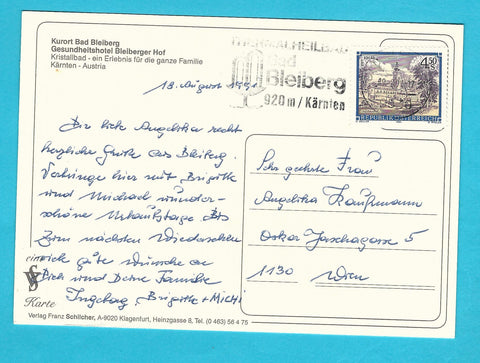 Kurort Bad Bleiberg
Gesundheitshotel Bleiberger Hof
Kristallbad - ein Erlebnis für die ganze Familie
Kärnten - Austria
THERMALHEILBAD
Bad
Bleiberg
920 m / Kärnten
4.50
REPUBLIK ÖSTERREICH
18. August
Dir liebe Angelika recht
herzliche Grüße aus Bleiberg.
Verbringe hier mit Brigitte
und Michael wunder-
schöne Urlaubstage Bis
zum nächsten Wiedersehen
viele gute Wünsche an
Dich und Deine Familie
Ingeborg, Brigitte + MICHI
Sehr geehrte Frau
Angelika Kaufmann
Oskar Jaschagasse 5
1130 Wien
Karte
Verlag Franz Schilcher, A-9020 Klagenfurt, Heinzgasse 8, Tel. (0 463) 56 4 75